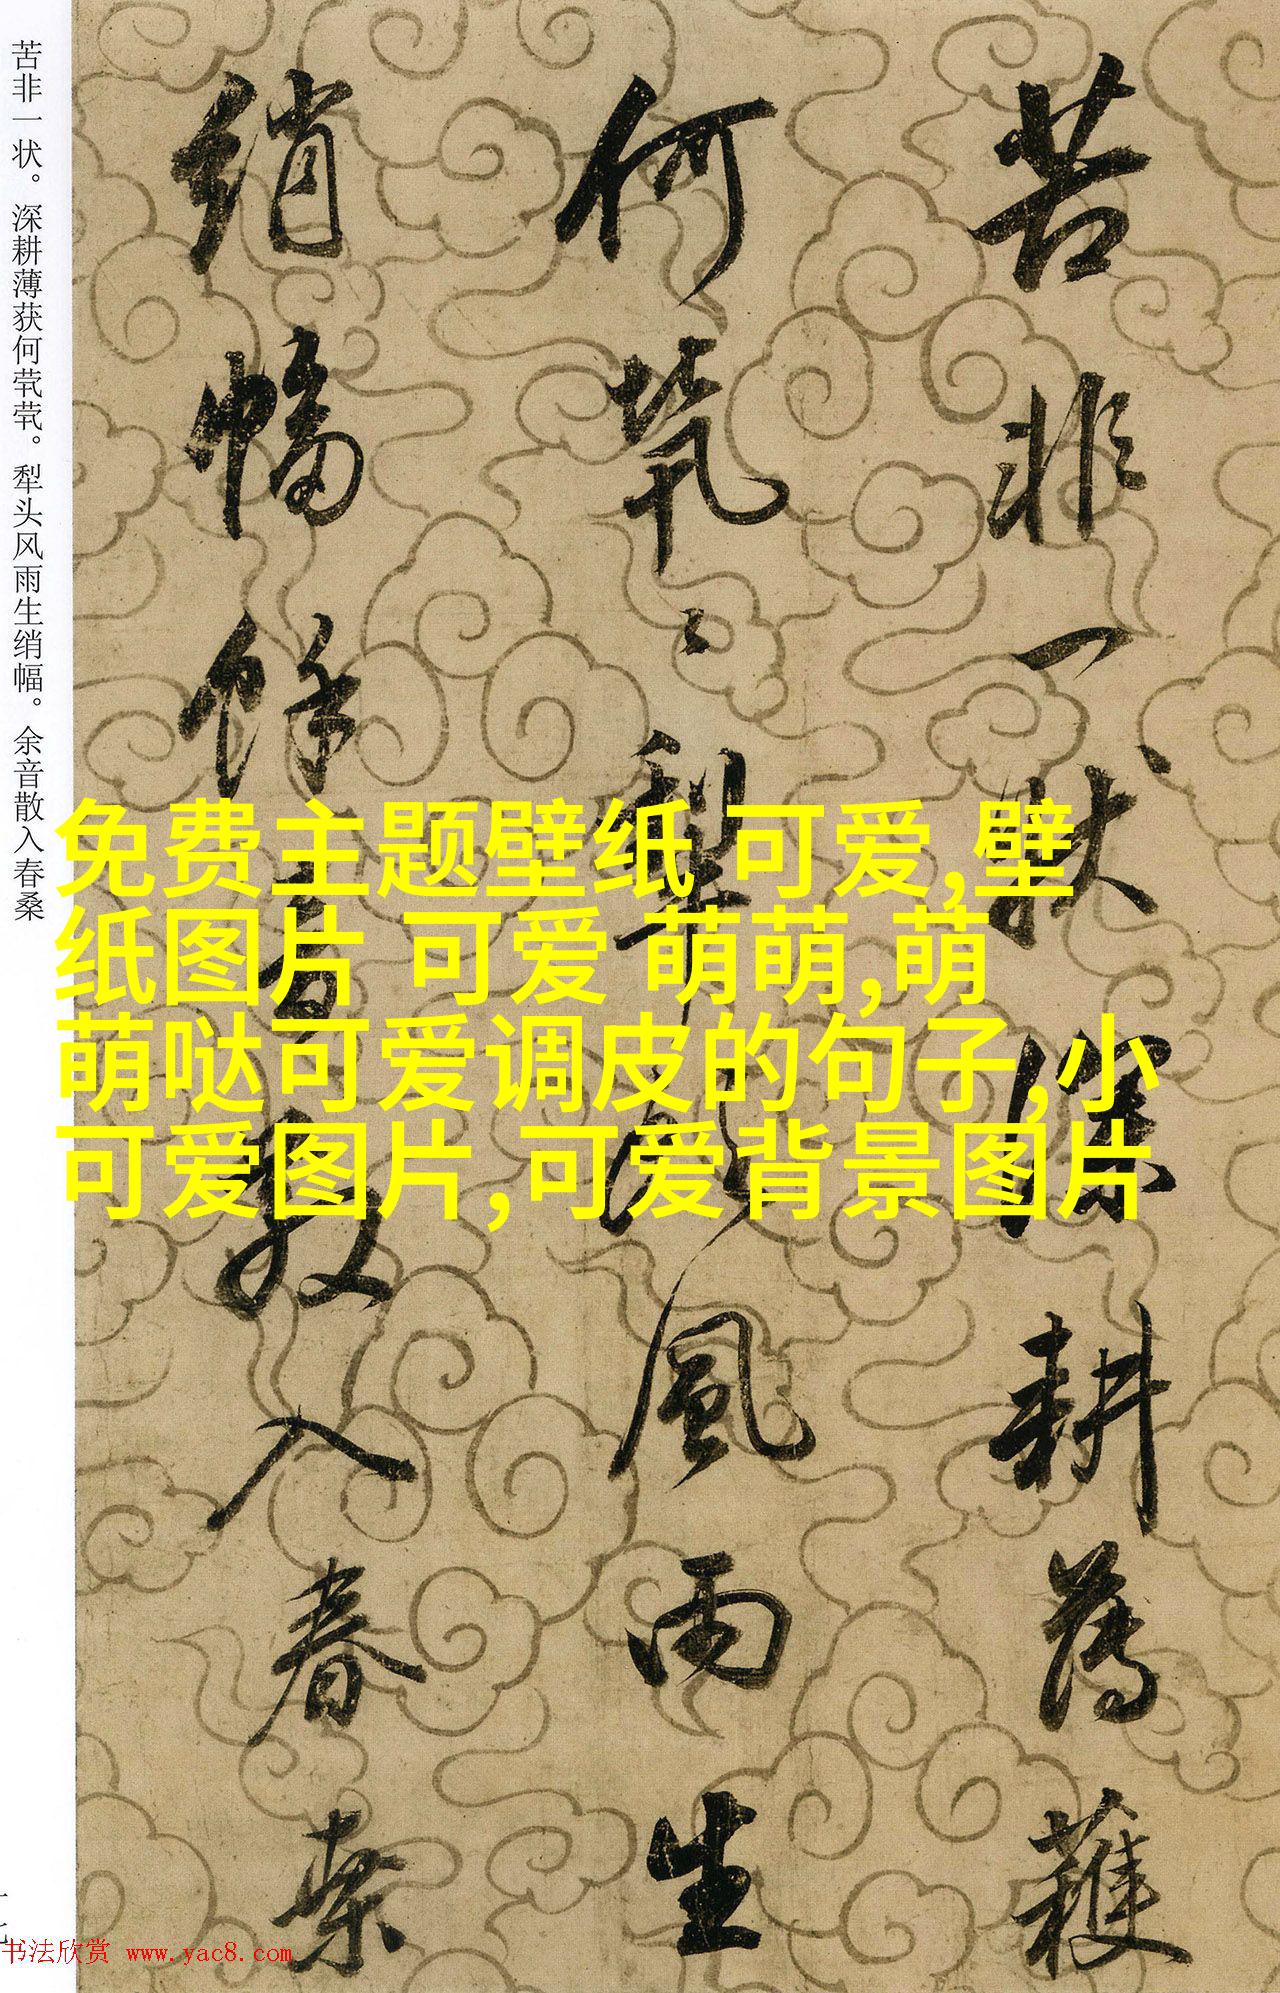 苦非一状。深耕薄获何茕茕。犁头风雨生绡幅。余音散入春桑
苦非一狀深耕薄穫
何煢〻犁頭風雨生
綃幅餘音散入春桑
免费主题壁纸 可爱,壁
纸图片 可爱 萌萌,萌
萌哒可爱调皮的句子,小
可爱图片,可爱背景图片
书法欣赏 www.yac8.com